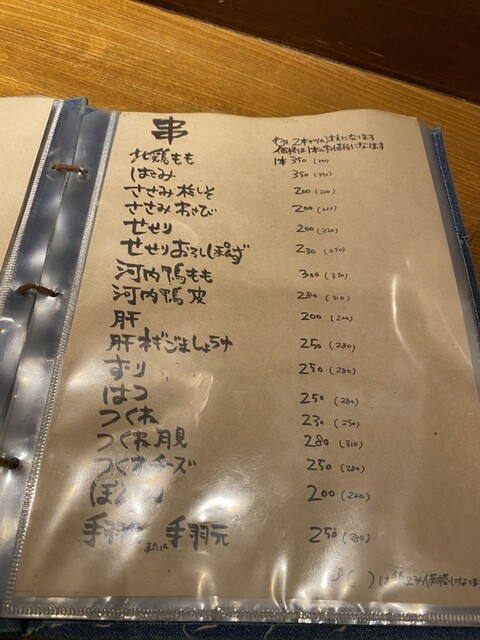 串
2本からの注文になります
価格は1本のお値段になります
地鶏もも 1本 350
はさみ 350
ささみ梅しそ 200 (220)
ささみわさび 200 (220)
せせり 200 (220)
せせりおろしぽんず 230 (250)
河内鴨もも 300 (330)
河内鴨皮 280 (310)
肝 200 (220)
肝ネギごましょうゆ 250 (280)
ずり 250 (280)
はつ 250 (280)
つくね 230 (250)
つくね月見 280 (310)
つくねチーズ 250 (280)
200 (220)
手羽 または 手羽元 250 (280)
( )は税込み価格